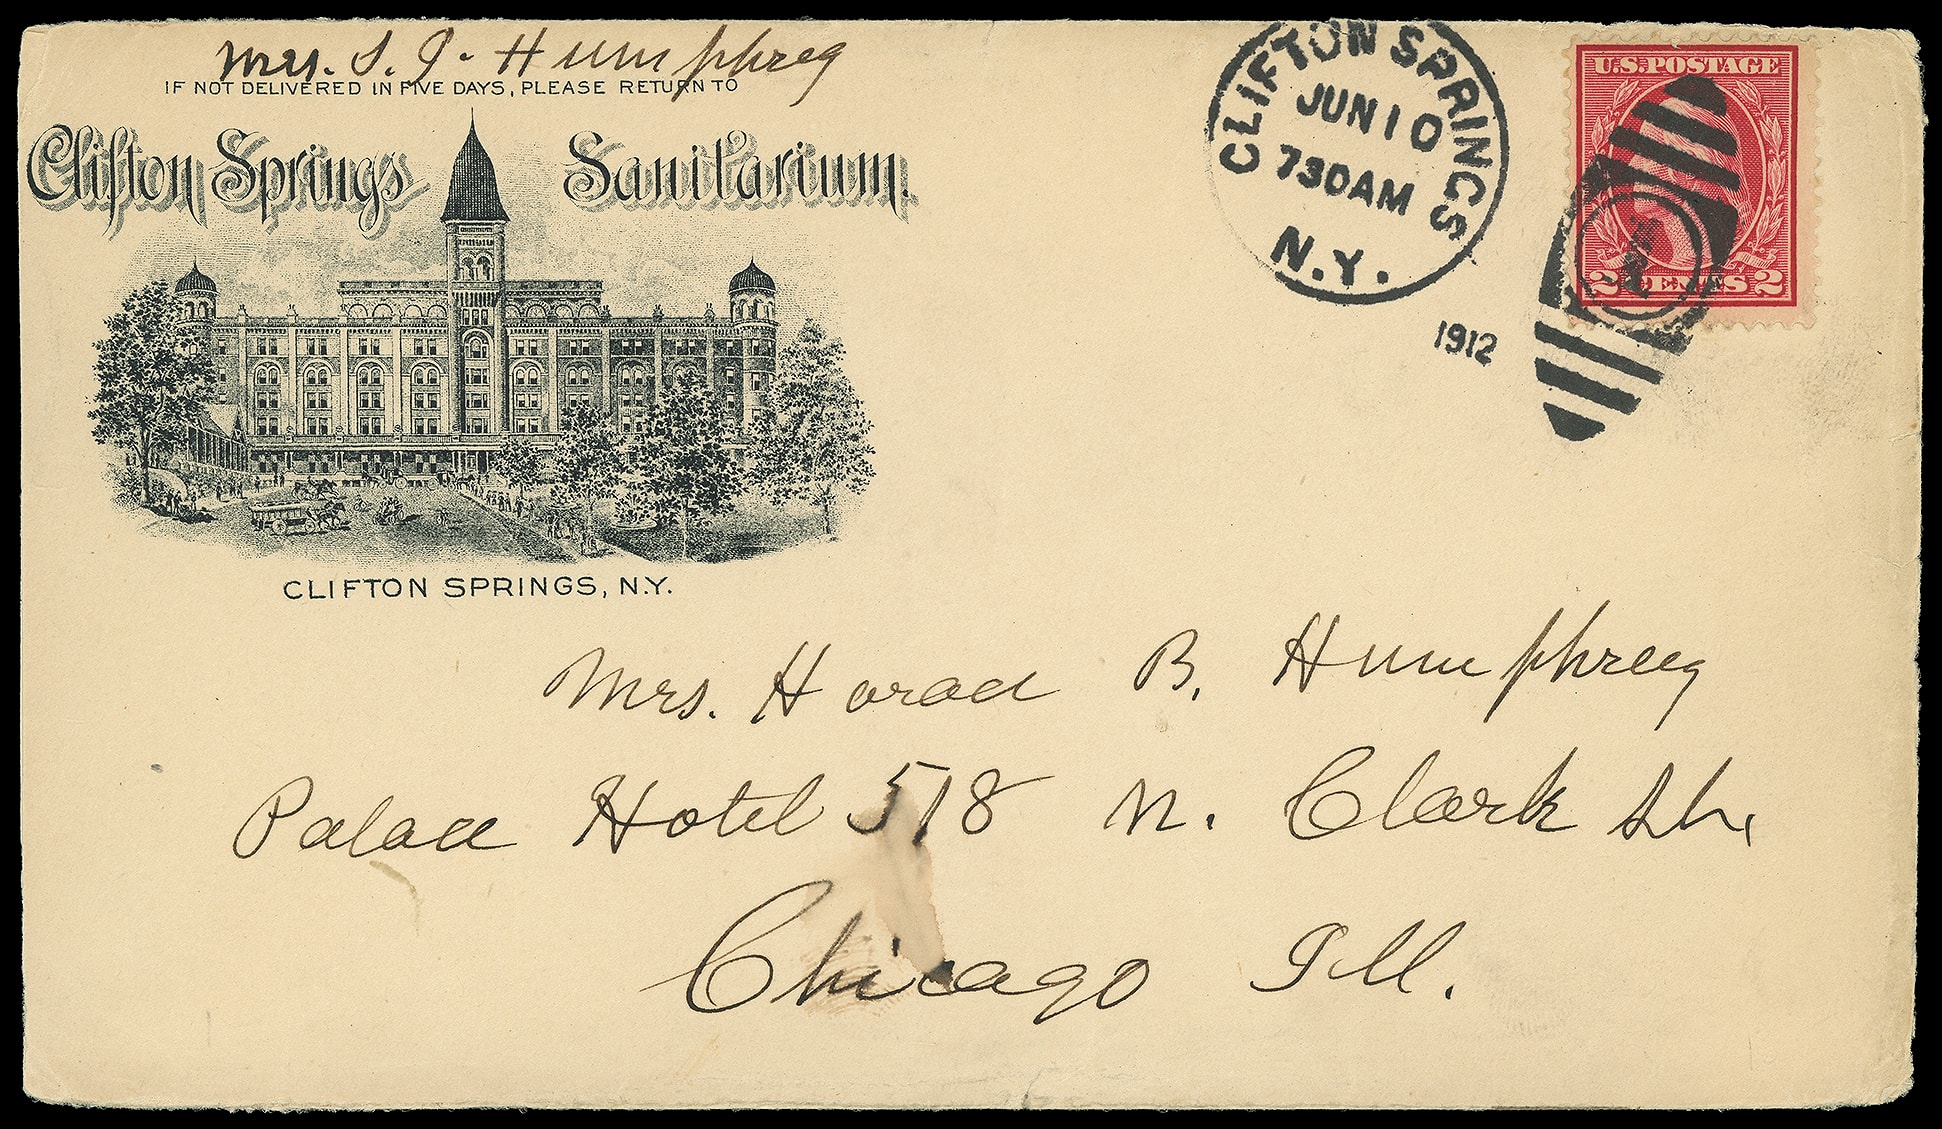 Mrs. S. J. Humphrey
IF NOT DELIVERED IN FIVE DAYS, PLEASE RETURN TO
Clifton Springs Sanitarium.
CLIFTON SPRINGS, N.Y.
CLIFTON SPRINGS
JUN 10
730AM
N.Y.
1912
U.S. POSTAGE
2 CENTS 2
Mrs. Horace B. Humphrey
Palace Hotel 518 N. Clark St.
Chicago Ill.